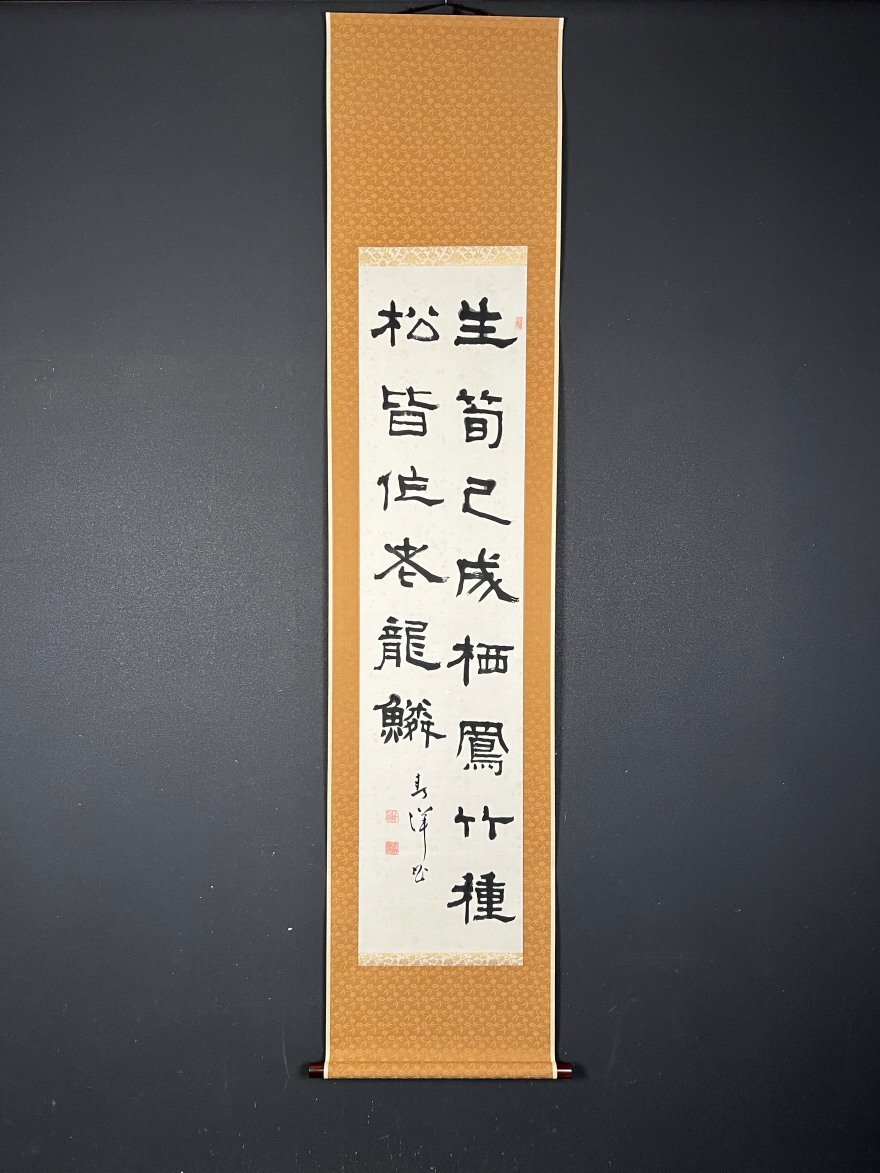 生筍已成栖鳳竹種
松皆作老龍鱗
洋書